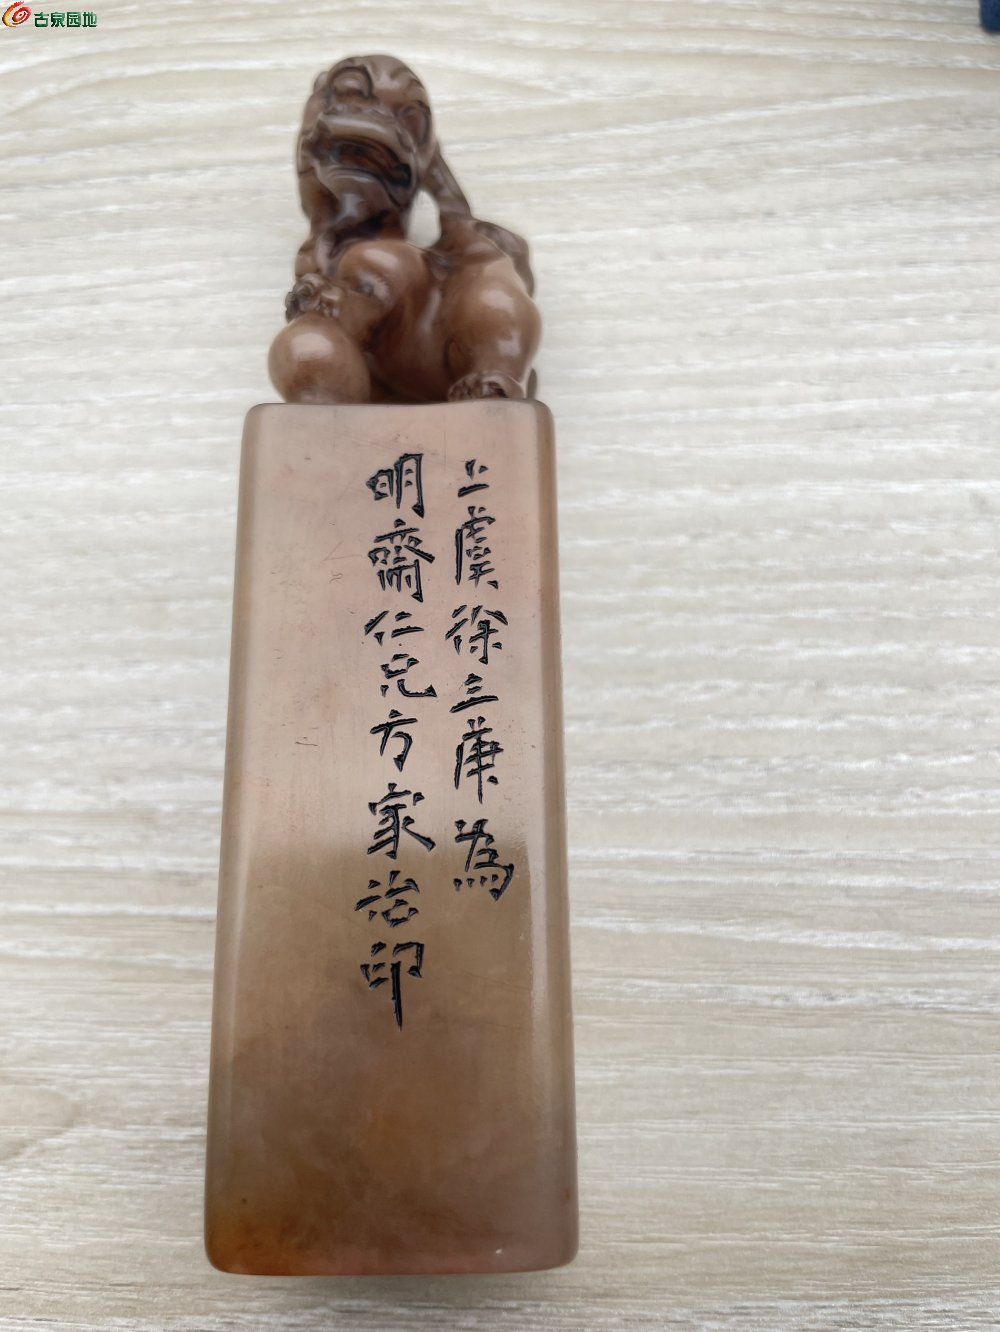 古泉园地
上虞徐三庚為
明齋仁兄方家治印